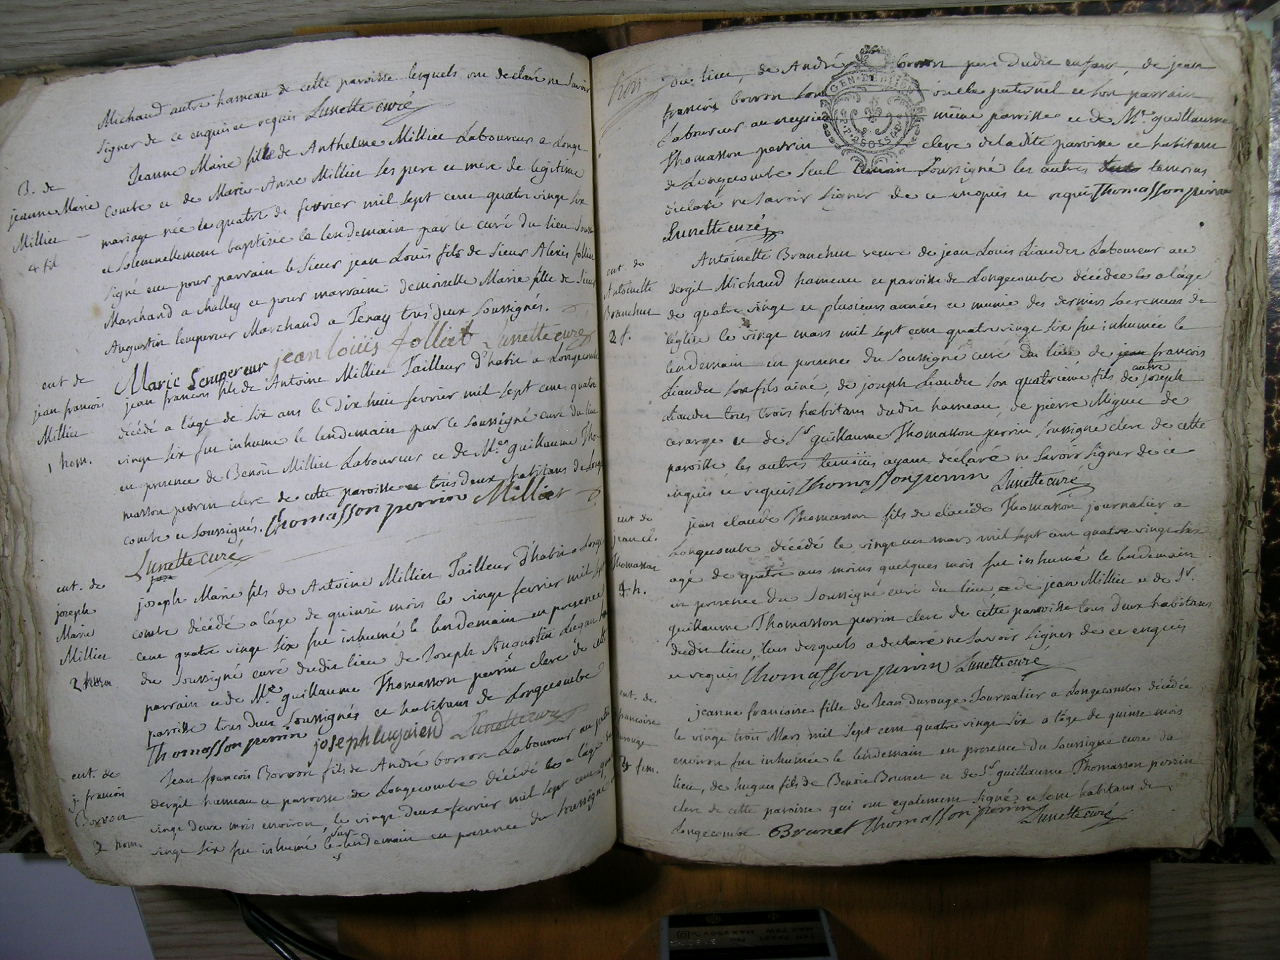 Michaud autre hameau de cette paroisse lesquels ont declaré ne savoir
signer de ce enquis et requis Lunette curé
B. de
jeanne Marie
Millier
4 fil
Jeanne Marie fille de Anthelme Millier Laboureur a Longe
combe et de Marie-Anne Millier ses pere et mere de legitime
mariage née le quatre de fevrier mil sept cent quatre vingt six
et solemnellement baptisée le lendemain par le curé du lieu sous
signé eut pour parrain le sieur jean Louis fils de Sieur Alexis jolliet
Marchand a challey et pour marraine demoiselle Marie fille de Sieur
Augustin Lempereur Marchand a Tenay tous deux soussignés.
Marie Lempereur jean louis jolliet Lunette curé
ent de
jean francois
Millier
1 hom.
jean francois fils de Antoine Millier Tailleur d'habit a Longecombe
décédé a l'age de six ans le dix huit fevrier mil sept cent quatre
vingt six fut inhumé le lendemain par le soussigné curé du lieu
en presence de Benoît Millier Laboureur et de Mre guillaume Tho
masson perrin clerc de cette paroisse et tous deux habitans de Longe
combe et soussignés. Thomasson perrin Millier
Lunette curé
ent. de
joseph
Marie
Millier
2 hom
joseph Marie fils de Antoine Millier Tailleur d'habit a Longe
combe décédé a l'age de quinze mois le vingt fevrier mil sept
cent quatre vingt six fut inhumé le lendemain en presence
du soussigné curé dudit lieu de Joseph Augustin
parrain et de Mre guillaume Thomasson perrin clerc de cette
paroisse tous deux soussignés et habitans de Longecombe
Thomasson perrin joseph Lunette curé
ent. de
j. francois
Borron
3 hom.
Jean francois Borron fils de André borron Laboureur au petit
dergit hameau et paroisse de Longecombe décédé a l'age de
vingt deux mois environ le vingt deux fevrier mil sept cent quatre
vingt six fut inhumé le lendemain en presence du soussigné
dit lieu, de André borron pere dudit enfant, de jean
francois borron son oncle paternel et son parrain
Laboureur au même paroisse et de Mre guillaume
Thomasson perrin clerc de ladite paroisse et habitant
de Longecombe seul soussigné les autres temoins
déclaré ne savoir signer de ce enquis et requis Thomasson perrin
Lunette curé
GEN. DE
ent. de
Antoinette
Branchu
2 f.
Antoinette Branchu veuve de jean Louis Liaudet Laboureur au
dergit Michaud hameau et paroisse de Longecombe décédée a l'age
de quatre vingt et plusieurs années et munie des derniers sacremens de
l'église le vingt mars mil sept cent quatre vingt six fut inhumée le
lendemain en presence du soussigné curé du lieu de jean francois
Liaudet son fils ainé, de joseph Liaudet son quatrieme fils de autre joseph
Liaudet tous trois habitans dudit hameau, de pierre Miguet de
et de Sr guillaume Thomasson perrin soussigné clerc de cette
paroisse les autres temoins ayant déclaré ne savoir signer de ce
enquis et requis Thomasson perrin Lunette curé
ent de
jean cl.
Thomasson
4. h.
jean claude Thomasson fils de claude Thomasson journalier a
Longecombe décédé le vingt un mars mil sept cent quatre vingt six
agé de quatre ans moins quelques mois fut inhumé le lendemain
en presence du soussigné curé du lieu et de jean Millier et de Sr
guillaume Thomasson perrin clerc de cette paroisse tous deux habitans
dudit lieu, l'un desquels a déclaré ne savoir signer de ce enquis
et requis Thomasson perrin Lunette curé
ent. de
francoise
3 fem.
jeanne francoise fille de Jean Journalier a Longecombe décédée
le vingt trois Mars mil sept cent quatre vingt six a l'age de quinze mois
environ fut inhumée le lendemain en presence du soussigné curé du
lieu, de hugues fils de Benoit Brunet et de Sr guillaume Thomasson perrin
clerc de cette paroisse qui ont également signé et sont habitans de
Longecombe Brunet Thomasson perrin Lunette curé